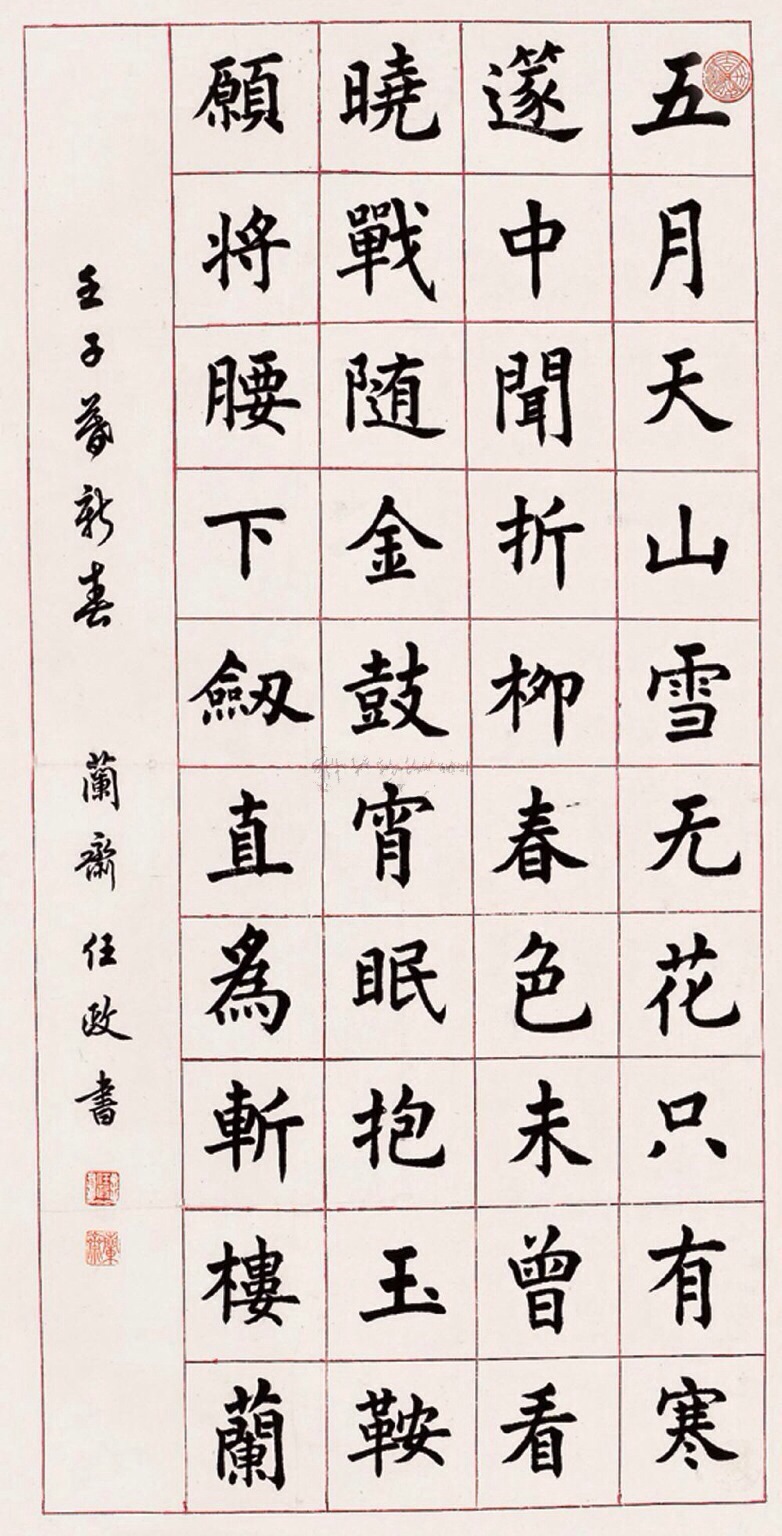 五月天山雪无花只有寒
篴中聞折柳春色未曾看
曉戰随金鼓宵眠抱玉鞍
願将腰下劔直爲斬樓蘭
壬子新春 蘭齋任政書